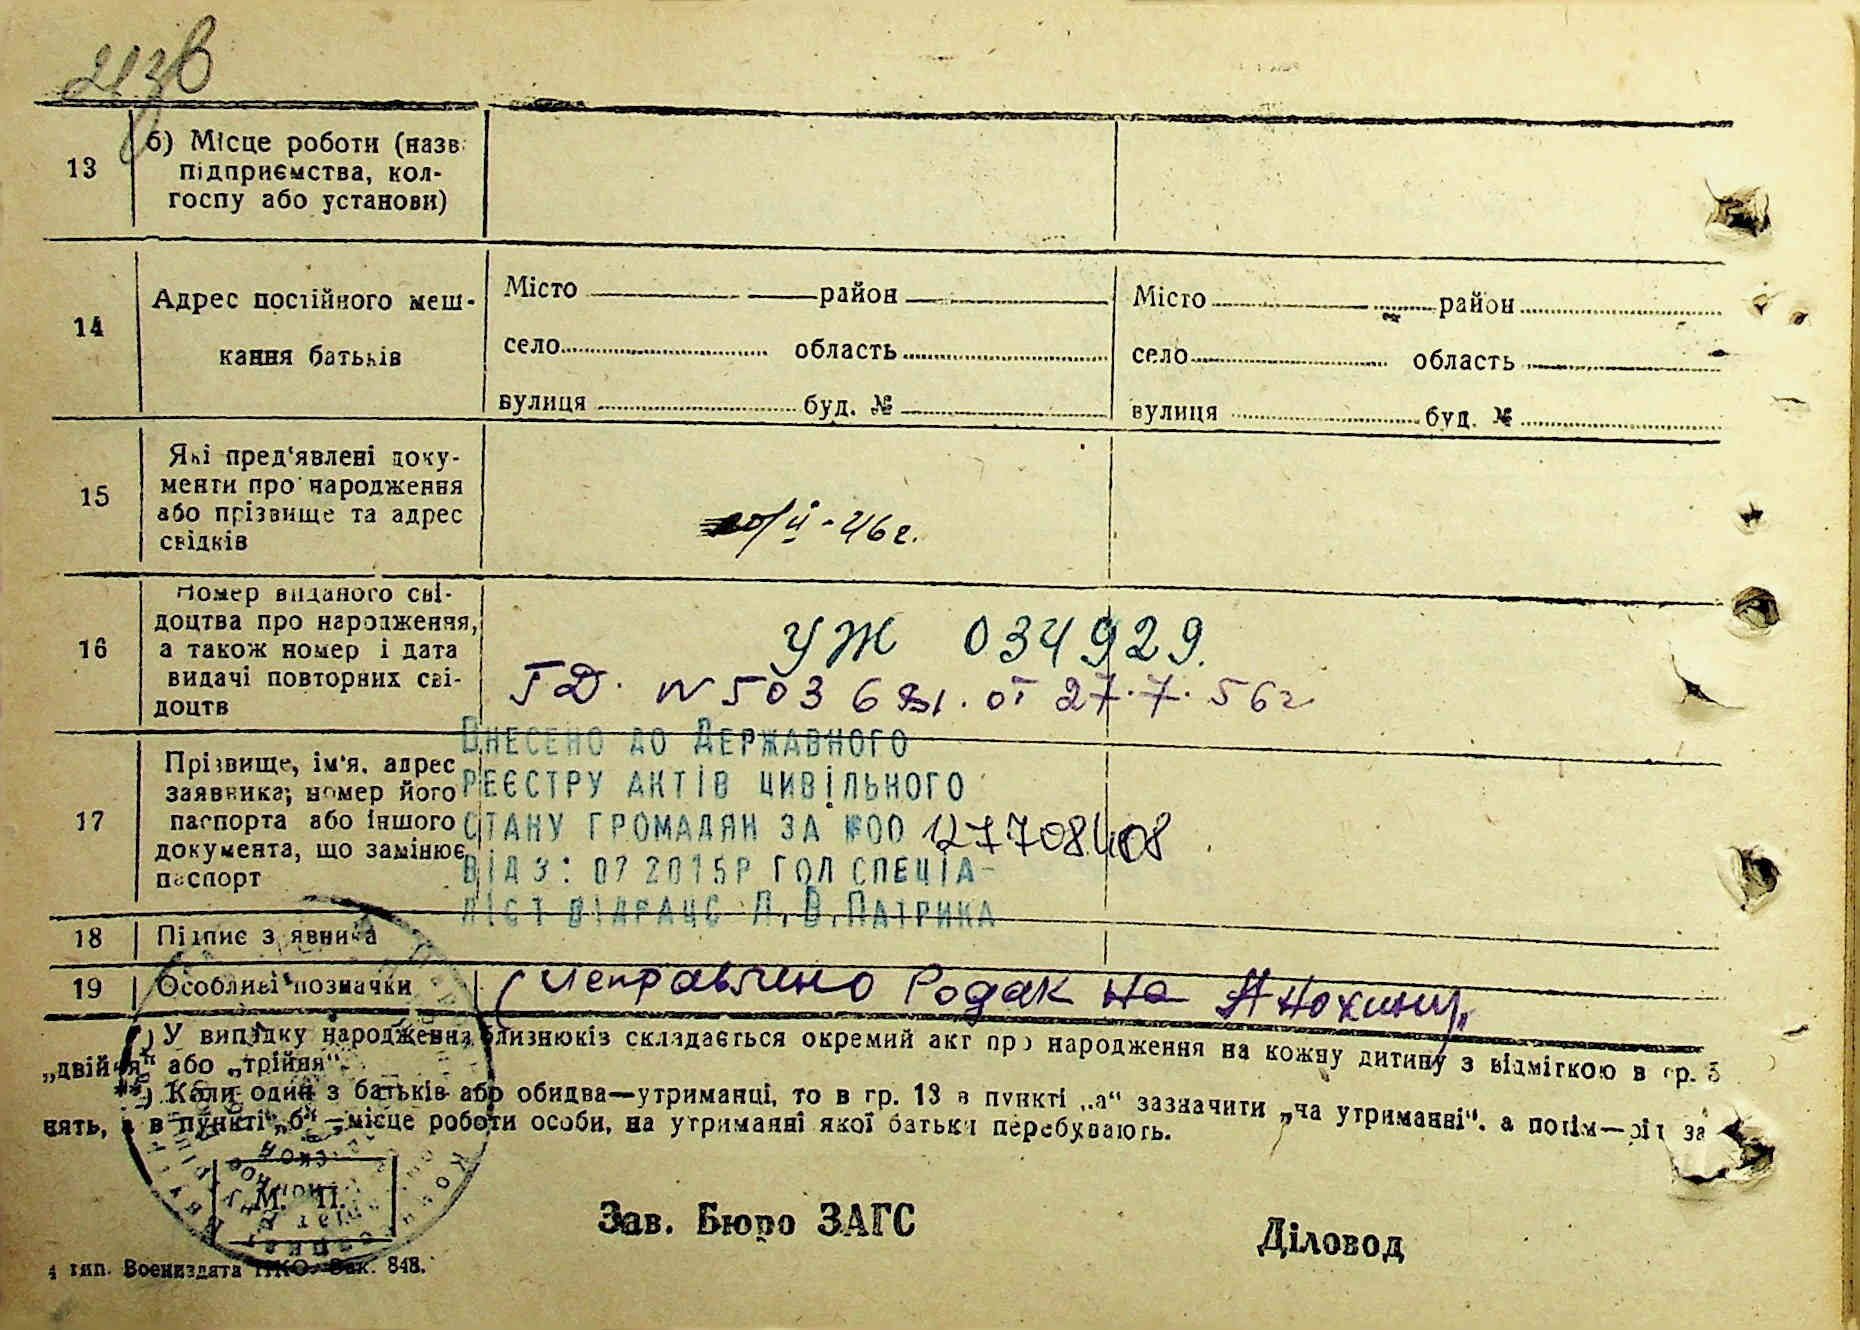 13
б) Місце роботи (назв
підприємства, кол-
госпу або установи)
14
Адрес постійного меш-
кання батьків
Місто район
село область
вулиця буд. №
Місто район
село область
вулиця буд. №
15
Які пред'явлені доку-
менти про народження
або прізвище та адрес
свідків
/II-46г.
16
Номер виданого сві-
доцтва про народження,
а також номер і дата
видачі повторних сві-
доцтв
УЖ 034929.
N 503 от 27.7.56г
17
Прізвище, ім'я, адрес
заявника; номер його
паспорта або іншого
документа, що замінює
паспорт
Внесено до Державного
реєстру актів цивільного
стану громадян за №00 127708408
від 3: 07 2015р гол спеціа-
ліст відрацс Л.В.Патрика
18
Підпис заявника
19
Особливі позначки
(исправлено Родак на Анохину,
*) У випадку народження близнюків складається окремий акт про народження на кожну дитину з відміткою в гр. 5
„двійня" або „трійня".
**) Коли один з батьків або обидва—утриманці, то в гр. 13 в пункті „а" зазначити „на утриманні", а потім—рід за
нять, а в пункті „б"—місце роботи особи, на утриманні якої батьки перебувають.
М. П.
Зав. Бюро ЗАГС
Діловод
4 тип. Воениздата НКО. Зак. 848.